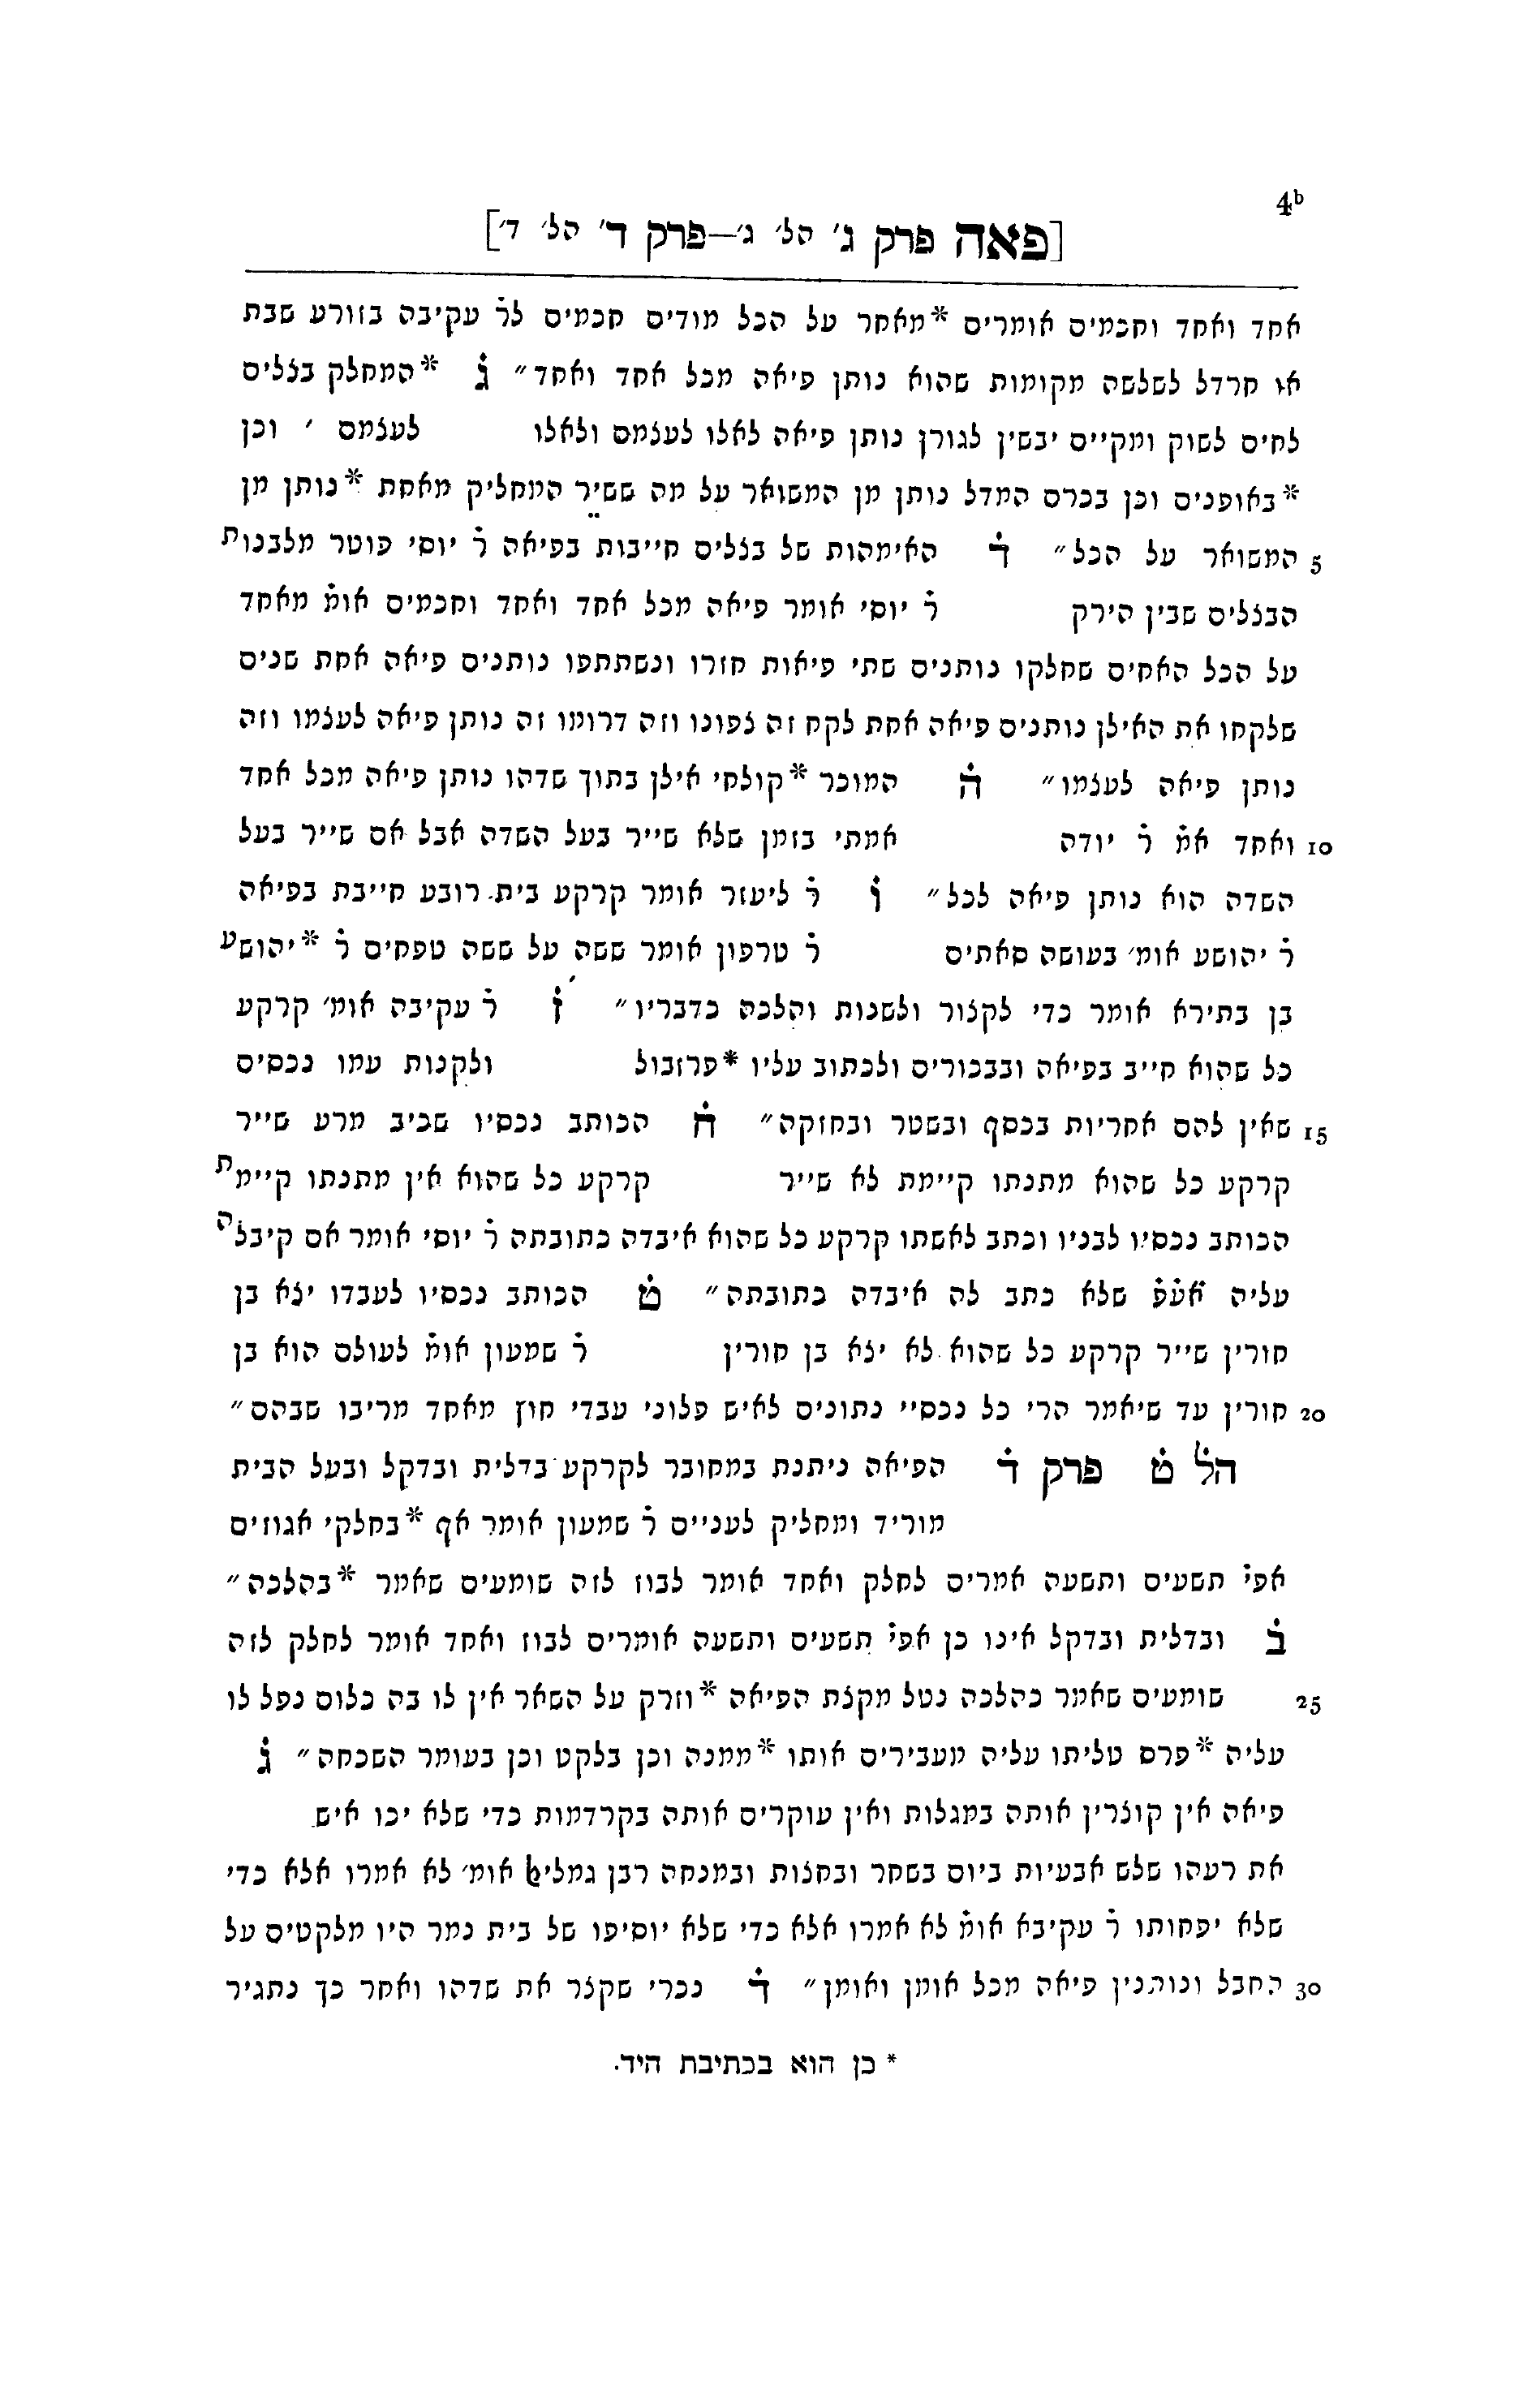 4b
[פאה פרק ג׳ הל׳ ג׳—פרק ד׳ הל׳ ד׳]
אחד ואחד וחכמים אומרים *מאחר על הכל מודים חכמים לר̇ עקיבה בזורע שבת
או חרדל לשלשה מקומות שהוא נותן פיאה מכל אחד ואחד״ ג̇ *המחלק בצלים
לחים לשוק ומקיים יבשין לגורן נותן פיאה לאלו לעצמם ולאלו לעצמם ׳ וכן
*באופנים וכן בכרם המדל נותן מן המשואר על מה ששיר המחליק מאחת *נותן מן
5 המשואר על הכל״ ד̇ האימהות של בצלים חייבות בפיאה ר̇ יוסי פוטר מלבנות
הבצלים שבין הירק ר̇ יוסי אומר פיאה מכל אחד ואחד וחכמים אומ̇ מאחד
על הכל האחים שחלקו נותנים שתי פיאות חזרו ונשתתפו נותנים פיאה אחת שנים
שלקחו את האילן נותנים פיאה אחת לקח זה צפונו וזה דרומו זה נותן פיאה לעצמו וזה
נותן פיאה לעצמו״ ה̇ המוכר *קולחי אילן בתוך שדהו נותן פיאה מכל אחד
10 ואחד אמ̇ ר̇ יודה אמתי בזמן שלא שייר בעל השדה אבל אם שייר בעל
השדה הוא נותן פיאה לכל״ ו̇ ר̇ ליעזר אומר קרקע בית רובע חייבת בפיאה
ר̇ יהושע אומ׳ בעושה סאתים ר̇ טרפון אומר ששה על ששה טפחים ר̇ *יהושע
בן בתירא אומר כדי לקצור ולשנות והלכה כדבריו״ ז̇ ר̇ עקיבה אומ׳ קרקע
כל שהוא חייב בפיאה ובבכורים ולכתוב עליו *פרוזבול ולקנות עמו נכסים
15 שאין להם אחריות בכסף ובשטר ובחזקה״ ח̇ הכותב נכסיו שכיב מרע שייר
קרקע כל שהוא מתנתו קיימת לא שייר קרקע כל שהוא אין מתנתו קיימת
הכותב נכסיו לבניו וכתב לאשתו קרקע כל שהוא איבדה כתובתה ר̇ יוסי אומר אם קיבלה
עליה אֿעֿפֿ שלא כתב לה איבדה כתובתה״ ט̇ הכותב נכסיו לעבדו יצא בן
חורין שייר קרקע כל שהוא לא יצא בן חורין ר̇ שמעון אומ̇ לעולם הוא בן
20 חורין עד שיאמר הרי כל נכסיי נתונים לאיש פלוני עבדי חוץ מאחד מריבו שבהם״
הל ט̇ פרק ד̇ הפיאה ניתנת במחובר לקרקע בדלית ובדקל ובעל הבית
מוריד ומחליק לעניים ר̇ שמעון אומר אף *בחלקי אגוזים
אפי̇ תשעים ותשעה אמרים לחלק ואחד אומר לבוז לזה שומעים שאמר *בהלכה״
ב̇ ובדלית ובדקל אינו כן אפי̇ תשעים ותשעה אומרים לבוז ואחד אומר לחלק לזה
25 שומעים שאמר כהלכה נטל מקצת הפיאה *וזרק על השאר אין לו בה כלום נפל לו
עליה *פרס טליתו עליה מעבירים אותו *ממנה וכן בלקט וכן בעומר השכחה״ ג̇
פיאה אין קוצרין אותה במגלות ואין עוקרים אותה בקרדמות כדי שלא יכו איש
את רעהו שלש אבעיות ביום בשחר ובחצות ובמנחה רבן גמליאל אומ׳ לא אמרו אלא כדי
שלא יפחותו ר̇ עקיבא אומ̇ לא אמרו אלא כדי שלא יוסיפו של בית נמר היו מלקטים על
30 החבל ונותנין פיאה מכל אומן ואומן״ ד̇ נכרי שקצר את שדהו ואחר כך נתגיר
* כן הוא בכתיבת היד.